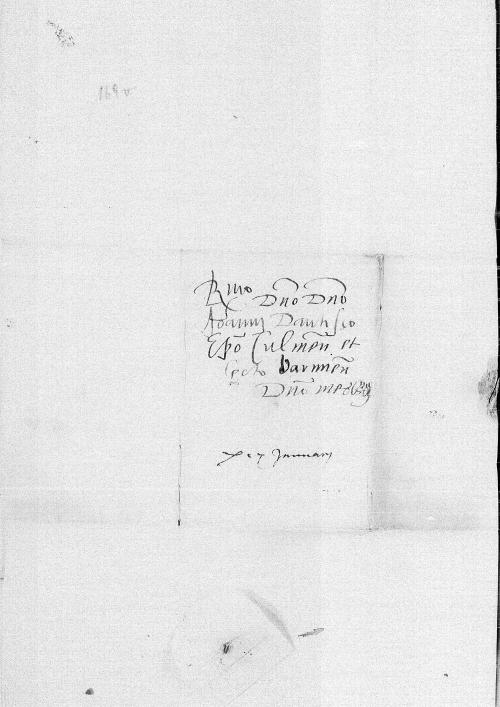 Rmo Dno Dno
Joanni Dantisco
Epo Culmen et
lecto varmien
Dno meo
Januarii